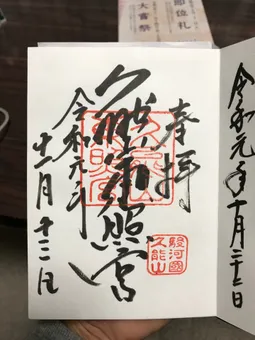 即位礼
大嘗祭
令和元年十月二十二日
奉拝
駿河國
久能山
久能山東照宮
令和元年
十一月十三日